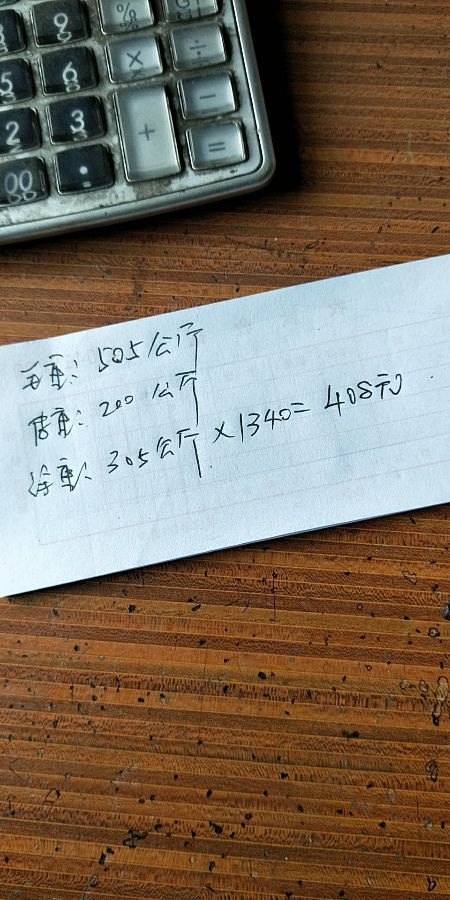 % GT
9 × ÷
5 6 −
2 3 + =
00 ·
毛重: 505公斤
皮重: 200公斤
净重: 305公斤×1340=408元